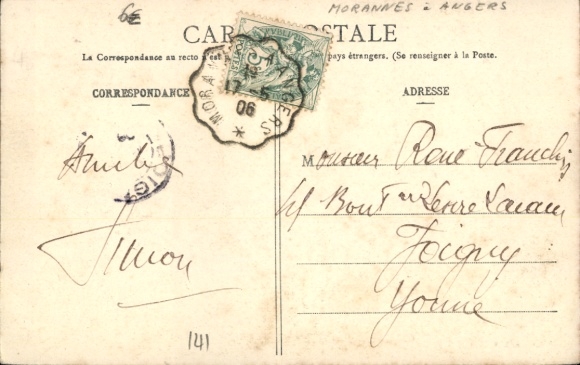 6€
MORANNES à ANGERS
CARTE POSTALE
La Correspondance au recto n'est pays étrangers. (Se renseigner à la Poste.
CORRESPONDANCE
ADRESSE
MORANNES A ANGERS
17-5
06
5
JOIGNY
Monsieur René Franchis
Joigny
Yonne
Simon
141